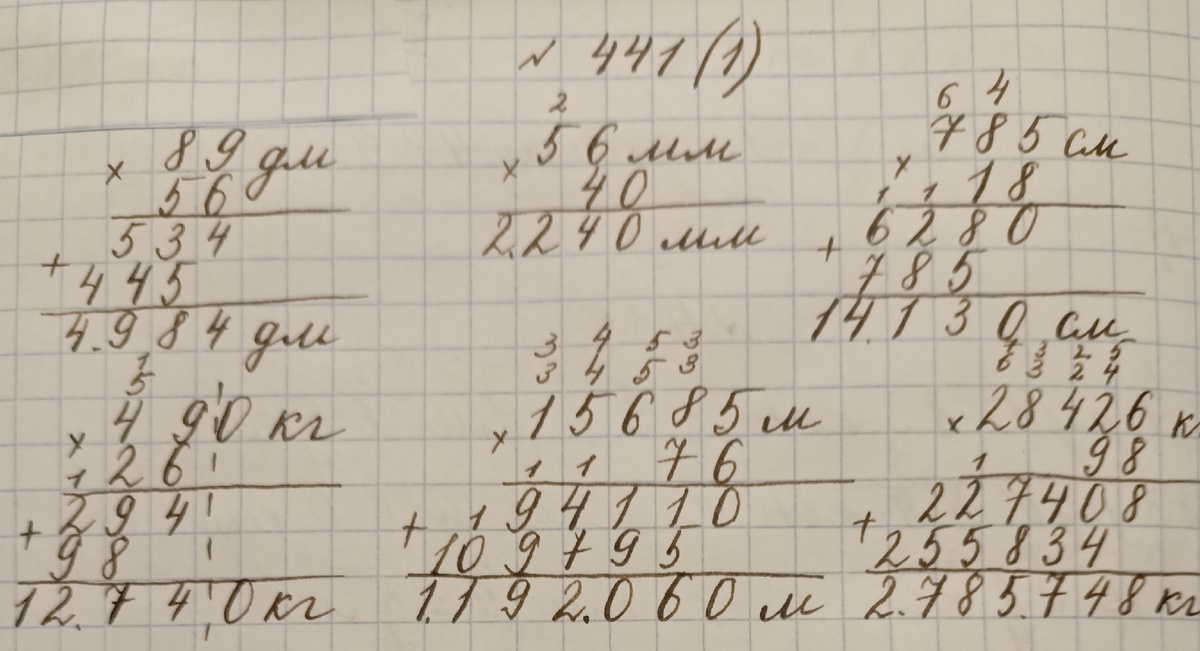 № 441 (1)
× 89 дм
56
534
+ 445
4.984 дм
2
× 56 мм
40
2.240 мм
6 4
× 785 см
1 1 18
+ 6280
785
14.130 см
1
5
× 490 кг
1 26
+ 294
98
12.740 кг
3 4 5 3
3 4 5 3
× 15685 м
1 1 76
+ 1 94110
109795
1.192.060 м
7 3 2 5
6 3 2 4
× 28426 к
1 98
+ 227408
255834
2.785.748 кг